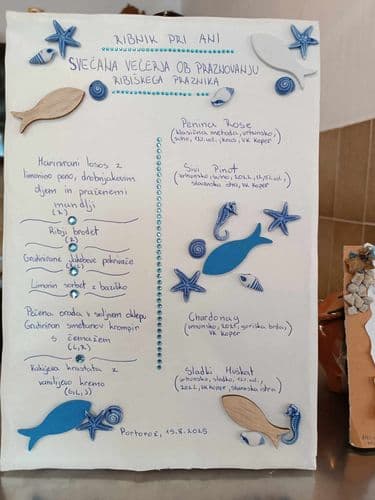 RIBNIK PRI ANI
SVEČANA VEČERJA OB PRAZNOVANJU
RIBIŠKEGA PRAZNIKA
Marinirani losos z
limonino peno, drobnjakovim
oljem in praženimi
mandlji
Ribji brodet
Gratinirane Jakobove pokrovače
Limonin sorbet z baziliko
Pečena orada v soljnem oklepu
Gratiniran smetanov krompir
s čemažem
Kakijeva hrustata z
vaniljevo kremo
Penina Rose
(klasična metoda, vrhunsko,
suho, kras, VK Koper)
Sivi Pinot
(vrhunsko, suho, 2022,
slovenska istra, VK Koper)
Chardonay
(vrhunsko, 2021, goriška brda,
VK Koper
Sladki Muškat
(vrhunsko, sladko,
2022, VK Koper, slovenska istra)
Portorož, 15.8.2025